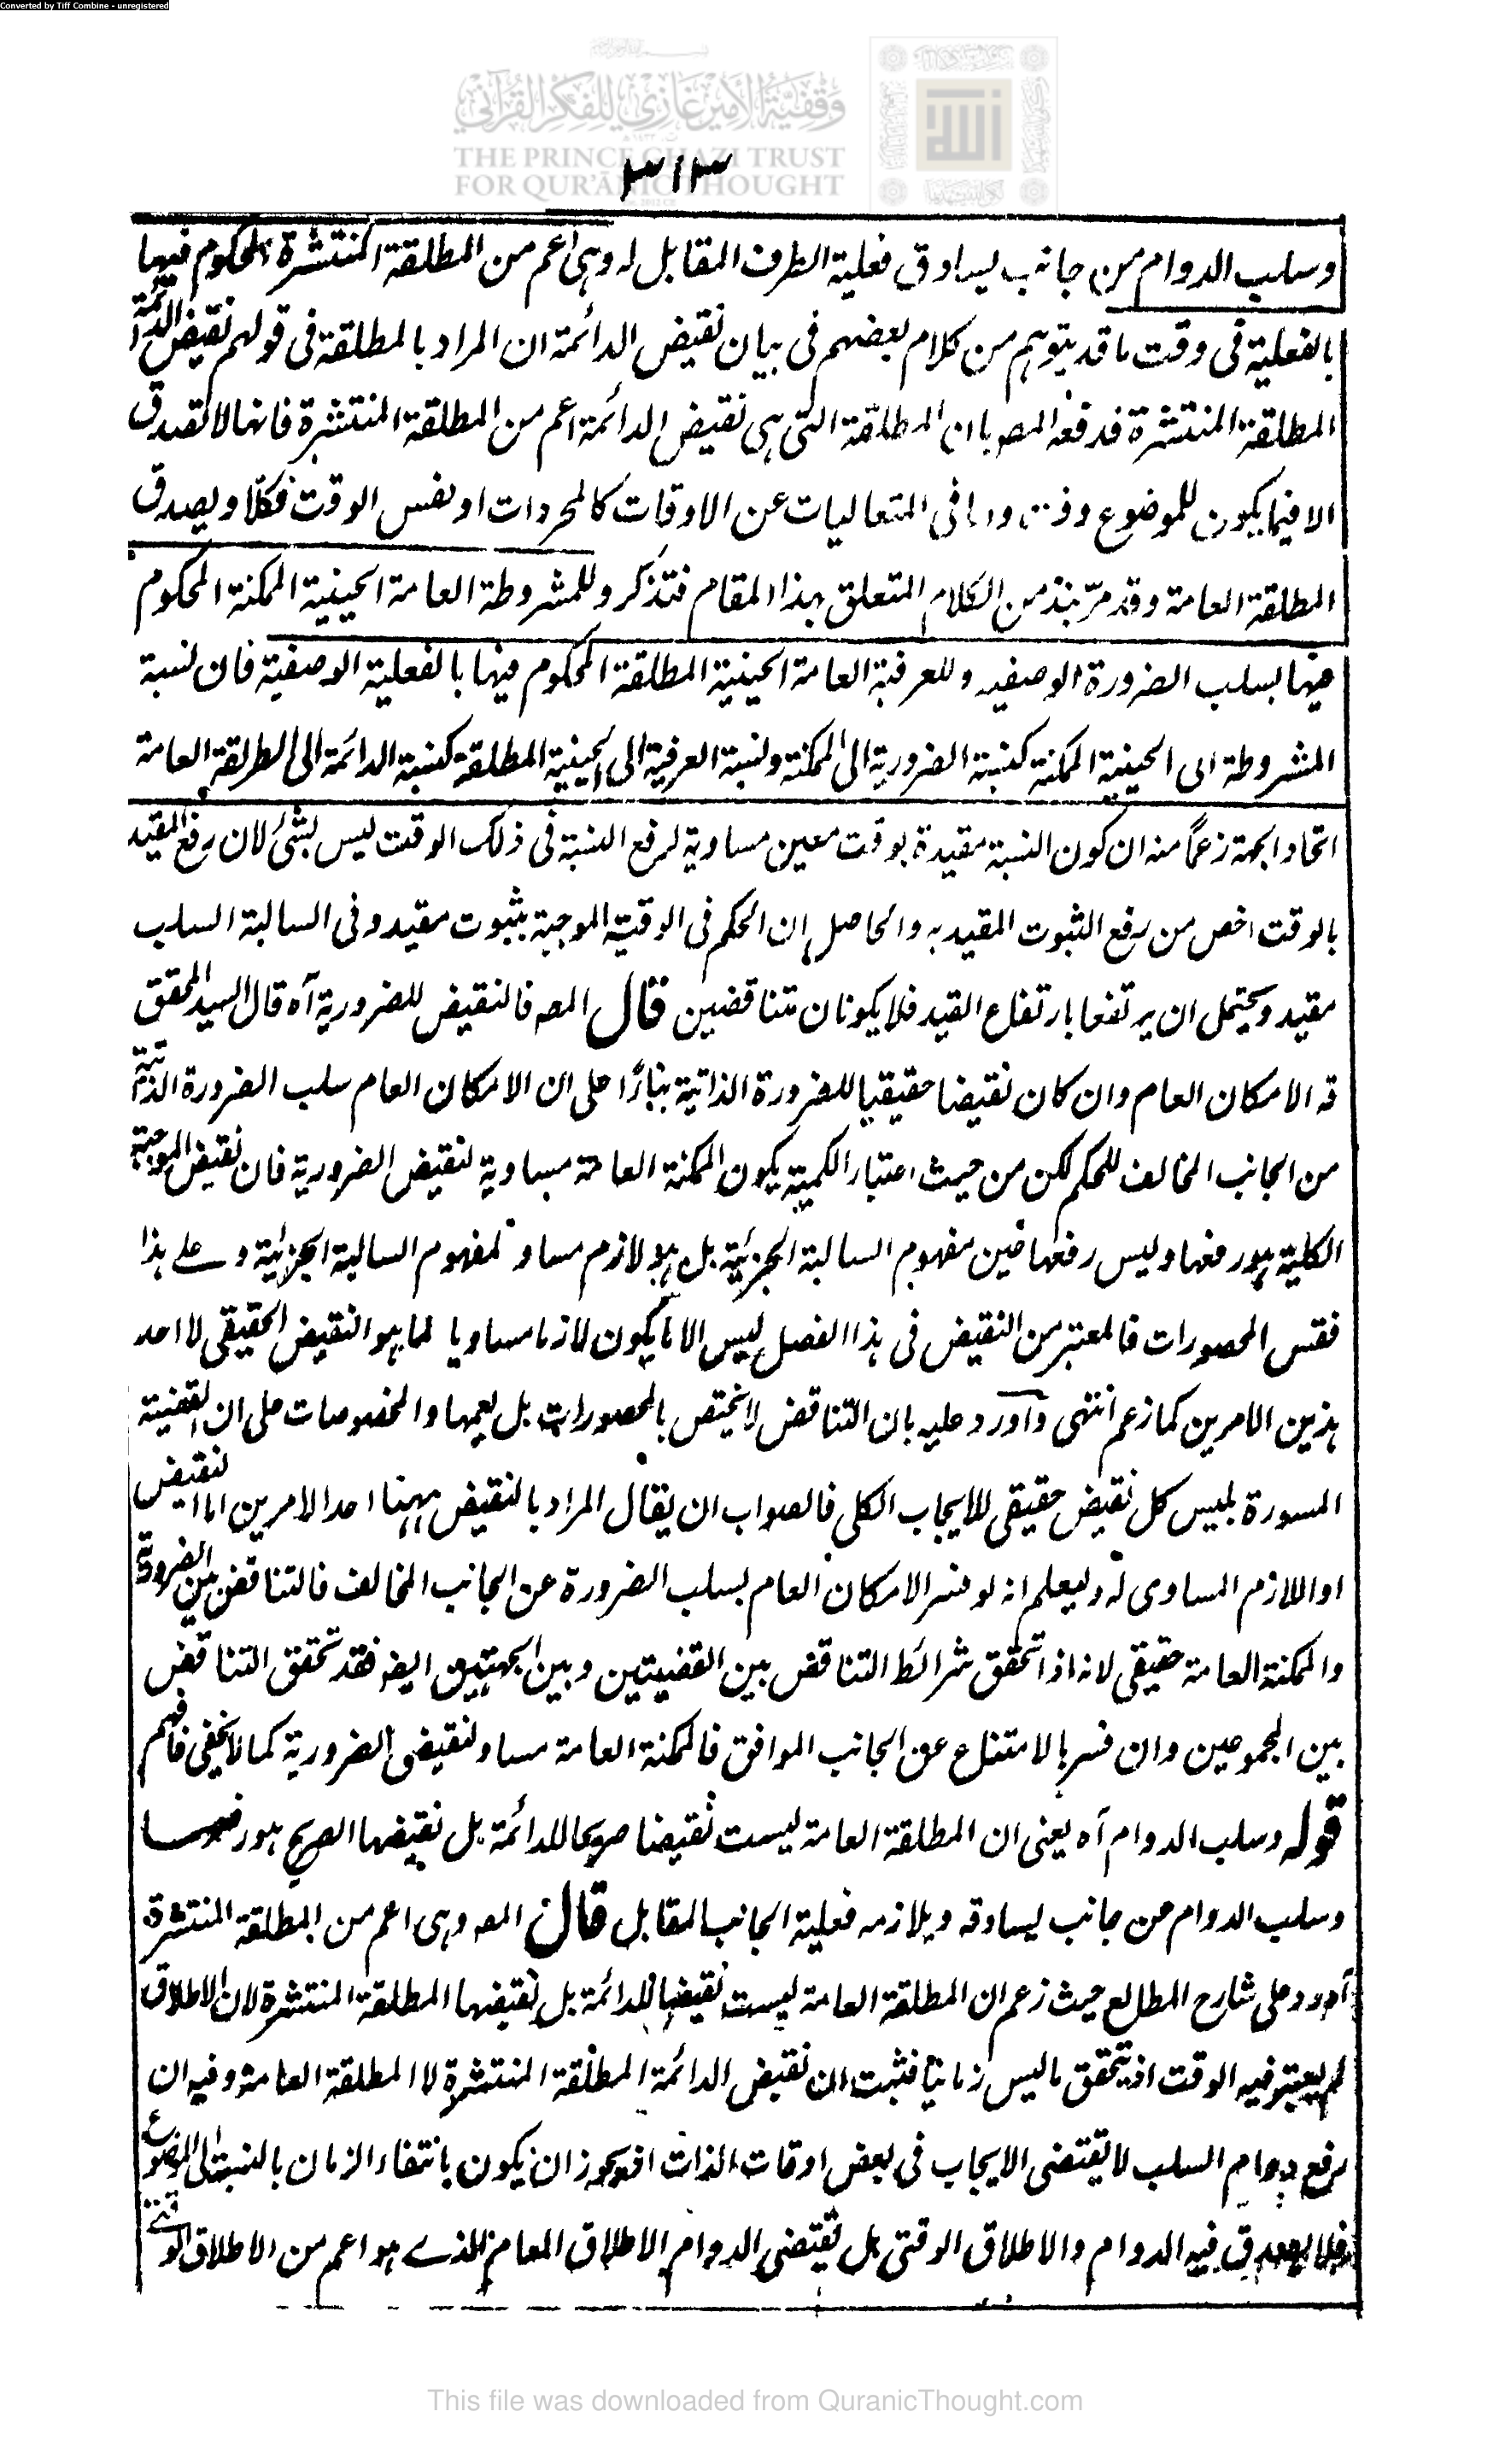 Converted by Tiff Combine - unregistered
وقفية الأمير غازي للفكر القرآني
THE PRINCE GHAZI TRUST
FOR QUR'ĀNIC THOUGHT
٣١٣
وسلب الدوام من جانب يساوق فعلية الطرف المقابل له وهى اعم من المطلقة المنتشرة المحكوم فيها
بالفعلية فى وقت ما قد يتوهم من كلام بعضهم فى بيان نقيض الدائمة ان المراد بالمطلقة فى قولهم نقيض الدائمة
المطلقة المنتشرة فدفعه المصـ بان المطلقة التى هى نقيض الدائمة اعم من المطلقة المنتشرة فانها لا تصدق
الا فيما يكون للموضوع وقت واما فى المتعاليات عن الاوقات كالمجردات او نفس الوقت فكلا ويصدق
المطلقة العامة وقد مرّ نبذ من الكلام المتعلق بهذا المقام فتذكر وللمشروطة العامة الحينية الممكنة المحكوم
فيها بسلب الضرورة الوصفية وللعرفية العامة الحينية المطلقة المحكوم فيها بالفعلية الوصفية فان نسبة
المشروطة الى الحينية الممكنة كنسبة الضرورية الى الممكنة ونسبة العرفية الى الحينية المطلقة كنسبة الدائمة الى المطلقة العامة
اتحاد الجهة زعماً منه ان كون النسبة مقيدة بوقت معين مساوية لرفع النسبة فى ذلك الوقت ليس بشئ لان رفع المقيد
بالوقت اخص من رفع الثبوت المقيد به والحاصل ان الحكم فى الوقتية الموجبة بثبوت مقيد وفى السالبة السلب
مقيد ويحتمل ان يرتفعا بارتفاع القيد فلا يكونان متناقضين قال المصـ فالنقيض للضرورية آه قال السيد المحقق
قه الامكان العام وان كان نقيضا حقيقيا للضرورة الذاتية بناءً على ان الامكان العام سلب الضرورة الذاتية
من الجانب المخالف للحكم لكن من حيث اعتبار الكمية يكون الممكنة العامة مساوية لنقيض الضرورية فان نقيض الموجبة
الكلية هو رفعها وليس رفعها عين مفهوم السالبة الجزئية بل هو لازم مساو لمفهوم السالبة الجزئية وعلى هذا
فقس المحصورات فالمعتبر من النقيض فى هذا الفصل ليس الا ما يكون لازما مساويا لما هو النقيض الحقيقى لا احد
هذين الامرين كما زعم انتهى واورد عليه بان التناقض لا يختص بالمحصورات بل يعمها والمخصوصات على ان القضية
المسورة بليس كل نقيض حقيقى للايجاب الكلى فالصواب ان يقال المراد بالنقيض ههنا احد الامرين اما النقيض
او اللازم المساوى له وليعلم انه لو فسر الامكان العام بسلب الضرورة عن الجانب المخالف فالتناقض بين الضرورية
والممكنة العامة حقيقى لانه اذا تحقق شرائط التناقض بين القضيتين وبين الجهتين ايضـ فقد تحقق التناقض
بين المجموعين وان فسر بلا امتناع عن الجانب الموافق فالممكنة العامة مساو لنقيض الضرورية كما لا يخفى فافهم
قوله وسلب الدوام آه يعنى ان المطلقة العامة ليست نقيضا صريحا للدائمة بل نقيضها الصريح هو رفعها
وسلب الدوام من جانب يساوقه ويلازمه فعلية الجانب المقابل قال المصـ وهى اعم من المطلقة المنتشرة
آه رد على شارح المطالع حيث زعم ان المطلقة العامة ليست نقيضا للدائمة بل نقيضها المطلقة المنتشرة لان الاطلاق
لم يعتبر فيه الوقت اذ يتحقق ما ليس زمانيا فثبت ان نقيض الدائمة المطلقة المنتشرة لا المطلقة العامة وفيه ان
رفع دوام السلب لا يقتضى الايجاب فى بعض اوقات الذات اذ يجوز ان يكون بانتفاء الزمان بالنسبة الى الموضوع
فلا يصدق فيه الدوام والاطلاق الوقتى بل نقيض الدوام الاطلاق العام الذى هو اعم من الاطلاق الوقتى
This file was downloaded from QuranicThought.com